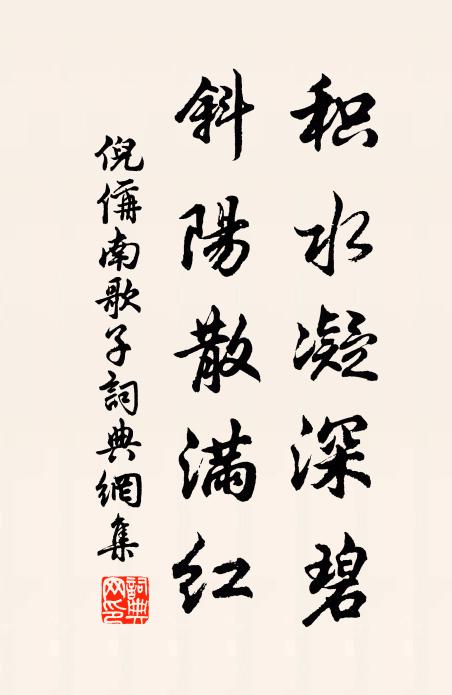 积水凝深碧
斜陽散满红
倪偁南歌子詞典網集
詞典网印